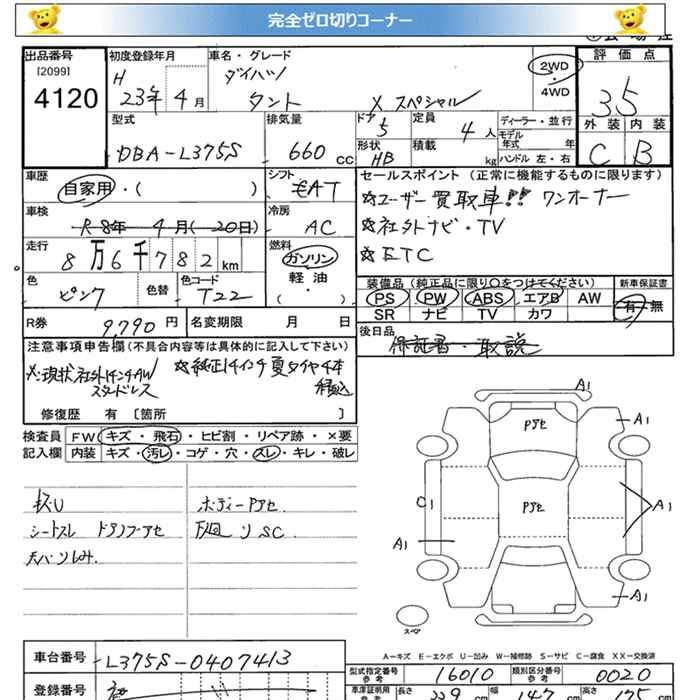 完全ゼロ切りコーナー
出品番号
[2099]
4120
初度登録年月
H 23年 4月
車名・グレード
ダイハツ
タント X スペシャル
2WD
4WD
評価点
3.5
外装 内装
C B
型式
DBA-L375S
排気量
660 cc
ドア 5
形状 HB
定員 4人
積載 kg
ディーラー・並行
モデル年式 年
ハンドル 左・右
車歴
自家用・( )
シフト
AT
車検
R-8年 4月(20日)
冷房
AC
走行
8万6千782km
燃料
ガソリン
軽油
( )
色
ピンク
色替
色コード
T22
R券 9,790円
名変期限 月 日
セールスポイント (正常に機能するものに限ります)
☆ユーザー買取車!! ワンオーナー
☆社外ナビ・TV
☆ETC
装備品(純正品に限り○をつけてください)
新車保証書
PS PW ABS エアB AW
SR ナビ TV カワ
有・無
後日品
保証書・取説
注意事項申告欄(不具合内容等は具体的に記入して下さい)
※現状社外14インチAW
スタッドレス
☆純正14インチ夏タイヤ4本
積込
修復歴 有 〔箇所 〕
検査員
記入欄
FW キズ・飛石・ヒビ割・リペア跡・×要
内装 キズ・汚レ・コゲ・穴・スレ・キレ・破レ
キズU
シートスレ ドラノブーアセ
天バリしみ.
ボディーPアセ.
下廻り SC.
A1
Pアセ
A1
Pアセ
C1
A1
A1
A1
スペア
A-キズ E-エクボ U-凹み W-補修跡 S-サビ C-腐食 XX-交換済
車台番号
L375S-0407413
登録番号
型式指定番号
参考
16010
類別区分番号
参考
0020
車庫証明用
参考
長さ
339 cm
幅
147 cm
高さ
175 cm